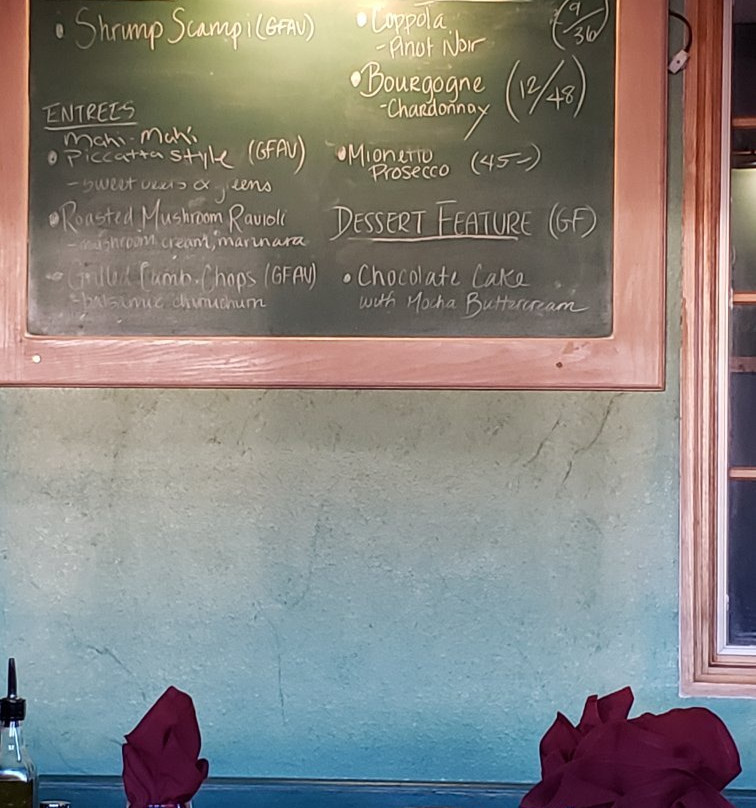 • Shrimp Scampi (GFAV)
ENTREES
Mahi-Mahi
• Piccatta style (GFAV)
- sweet & greens
• Roasted Mushroom Ravioli
- mushroom cream, marinara
• Grilled Lamb Chops (GFAV)
- balsamic chimichurri
• Coppola (9/36)
- Pinot Noir
• Bourgogne (12/48)
- Chardonnay
• Mionetto (45-)
Prosecco
DESSERT FEATURE (GF)
• Chocolate Cake
with Mocha Buttercream